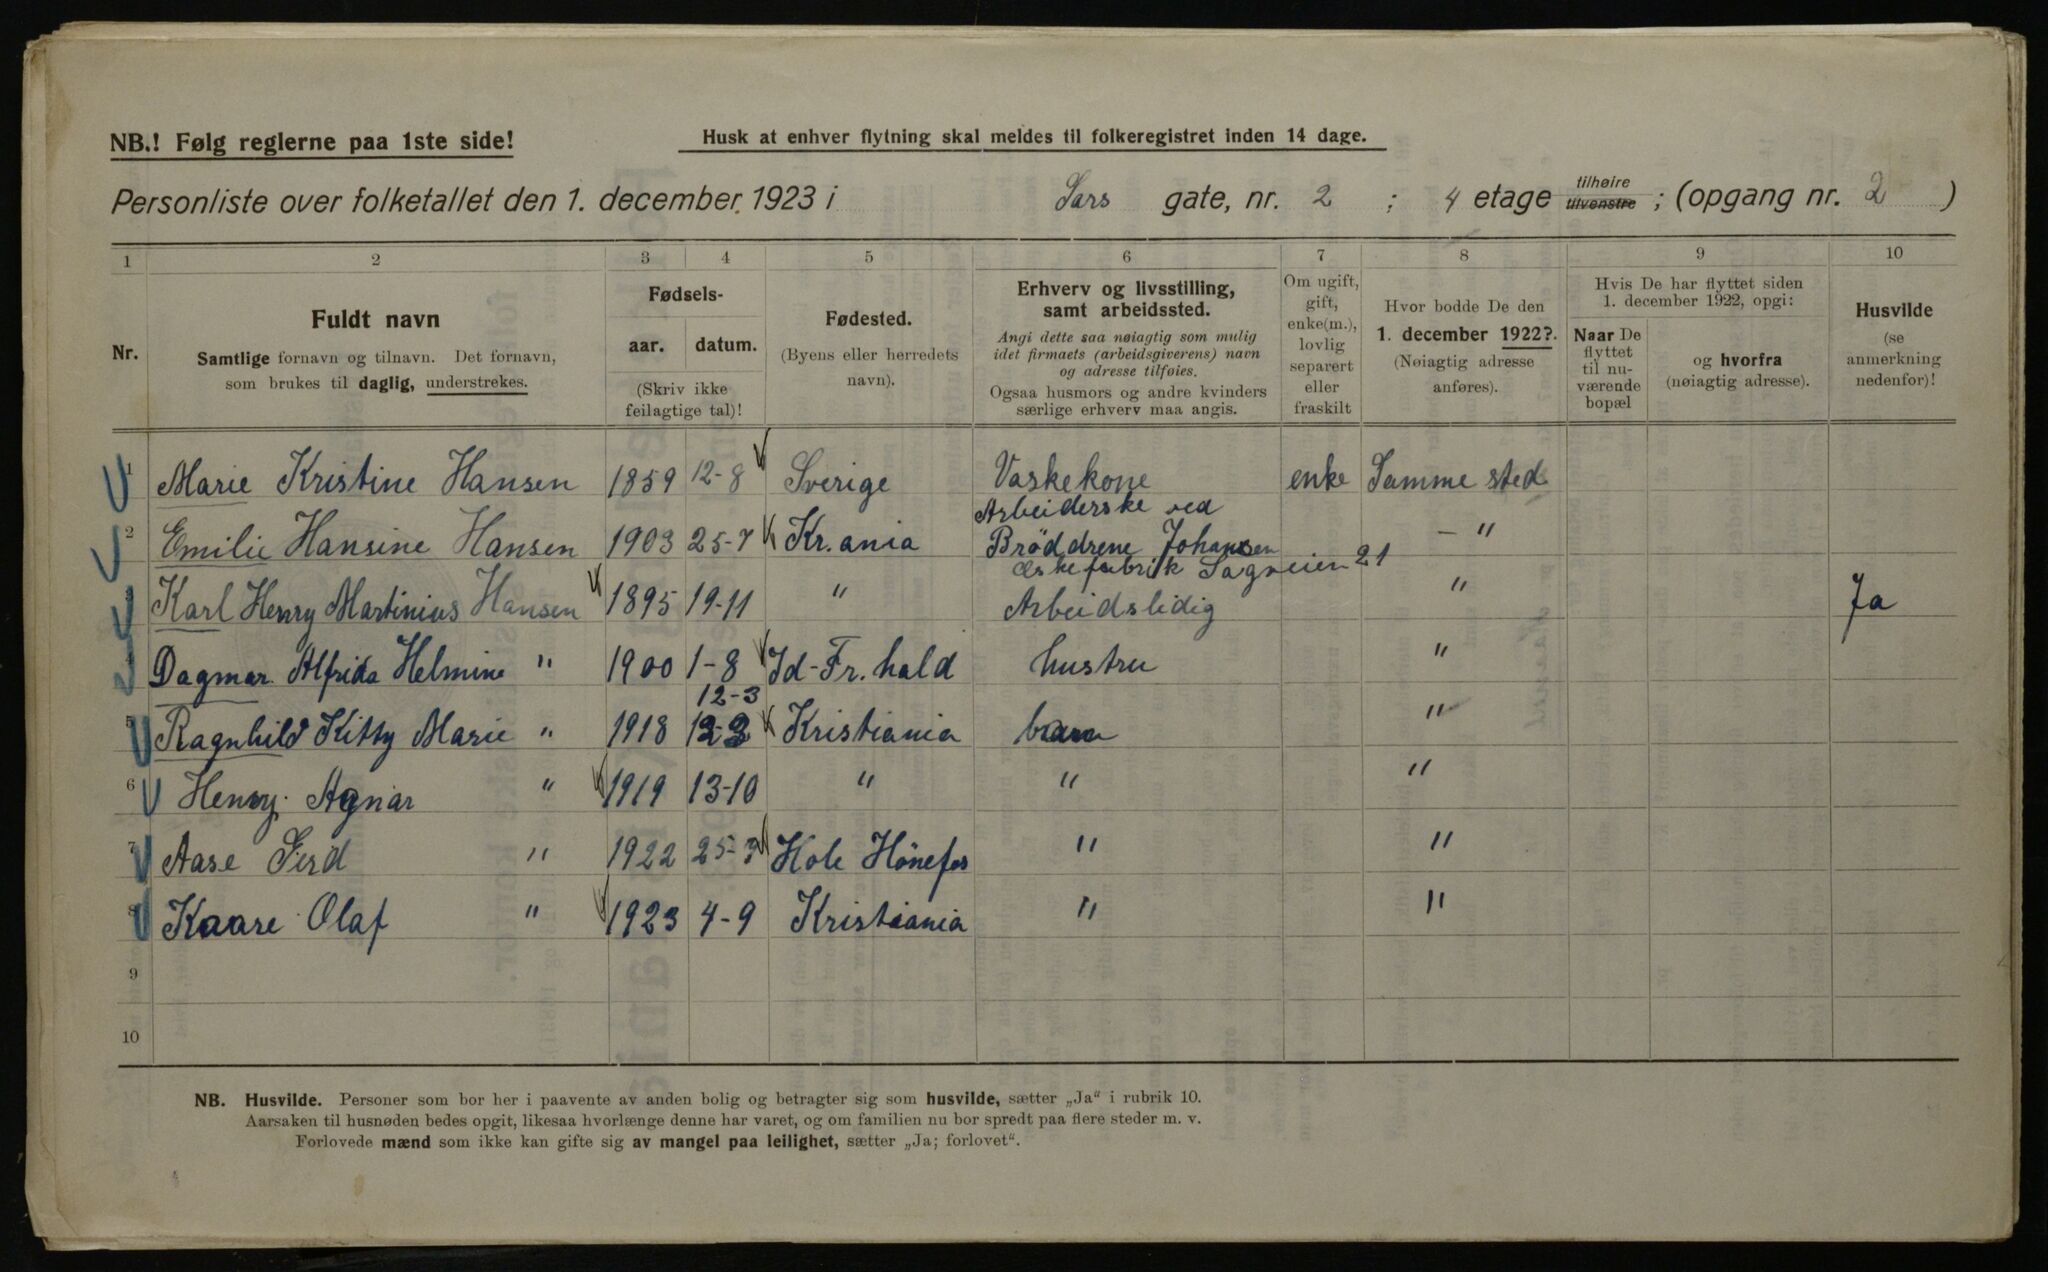 NB.! Følg reglerne paa 1ste side!
Husk at enhver flytning skal meldes til folkeregistret inden 14 dage.
Personliste over folketallet den 1. december 1923 i Sars gate, nr. 2 ; 4 etage tilhøire tilvenstre ; (opgang nr. 2 )
1 2 3 4 5 6 7 8 9 10
Nr.
Fuldt navn
Samtlige fornavn og tilnavn. Det fornavn,
som brukes til daglig, understrekes.
Fødsels-
aar. datum.
(Skriv ikke
feilagtige tal)!
Fødested.
(Byens eller herredets
navn).
Erhverv og livsstilling,
samt arbeidssted.
Angi dette saa nøiagtig som mulig
idet firmaets (arbeidsgiverens) navn
og adresse tilføies.
Ogsaa husmors og andre kvinders
særlige erhverv maa angis.
Om ugift,
gift,
enke(m.),
lovlig
separert
eller
fraskilt
Hvor bodde De den
1. december 1922?.
(Nøiagtig adresse
anføres).
Hvis De har flyttet siden
1. december 1922, opgi:
Naar De
flyttet
til nu-
værende
bopæl
og hvorfra
(nøiagtig adresse).
Husvilde
(se
anmerkning
nedenfor)!
1 Marie Kristine Hansen 1859 12-8 Sverige Vaskekone enke Samme sted
2 Emilie Hansine Hansen 1903 25-7 Kr.ania Arbeiderske ved
Brøddrene Johansen
æskefabrik Sagveien 21 — "
3 Karl Henry Martinius Hansen 1895 19-11 " Arbeidsledig " Ja
4 Dagmar Alfrida Helmine " 1900 1-8 Id-Fr.hald hustru "
12-3
5 Ragnhild Kitty Marie " 1918 Kristiania barn "
6 Henry Agnar " 1919 13-10 " " "
7 Aase Gerd " 1922 25-3 Hole Hönefos " "
8 Kaare Olaf " 1923 4-9 Kristiania " "
9
10
NB. Husvilde. Personer som bor her i paavente av anden bolig og betragter sig som husvilde, sætter „Ja“ i rubrik 10.
Aarsaken til husnøden bedes opgit, likesaa hvorlænge denne har varet, og om familien nu bor spredt paa flere steder m. v.
Forlovede mænd som ikke kan gifte sig av mangel paa leilighet, sætter „Ja; forlovet“.